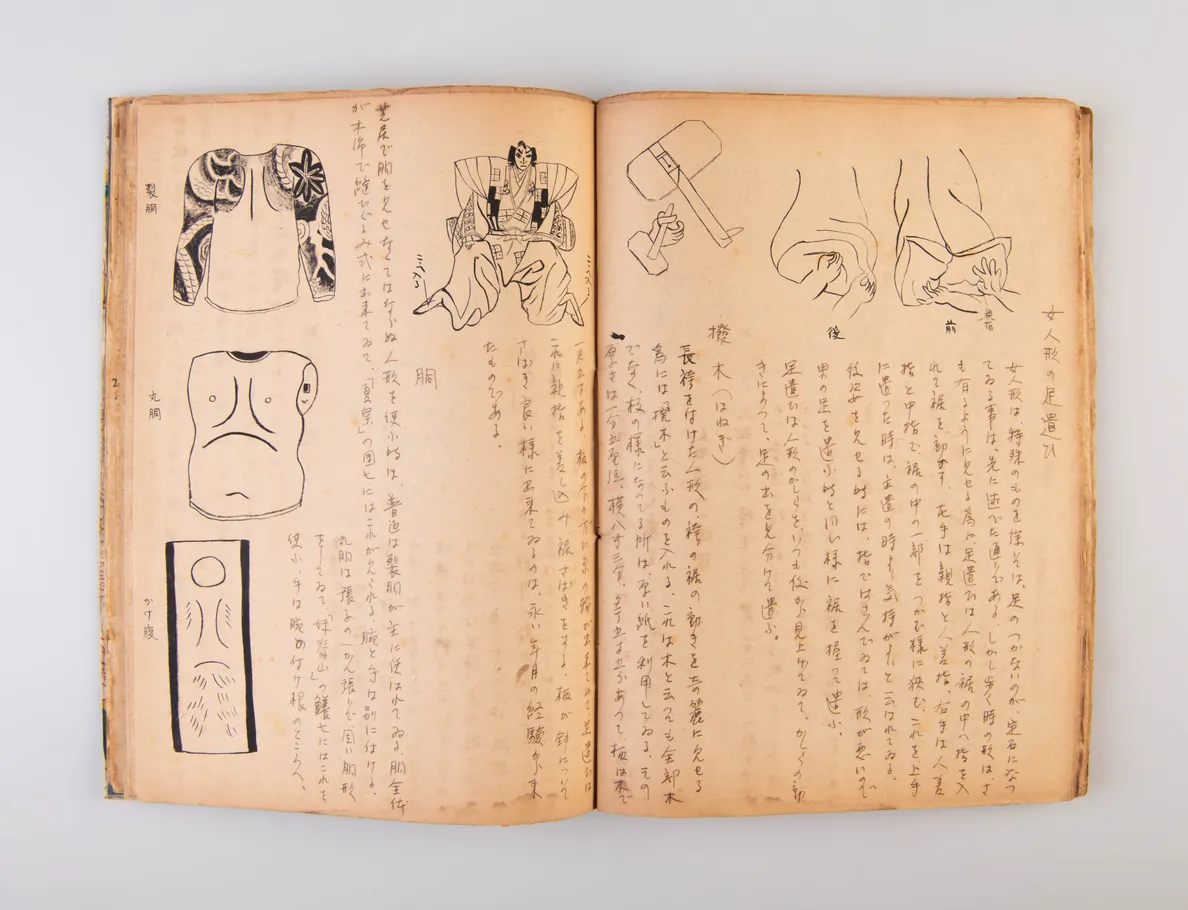 女人形の足遣ひ
女人形は、特殊のものを除そは、足のつかないのが、定石になつ
てゐる事は、先に述べた通りである。しかし歩く時の形は、さ
も有るように見せる為に、足遣ひは人形の裾の中へ指を入
れて裾を動かす。左手は親指と人差指、右手は人差
指と中指で、裾の中の一部をつかむ様に狭む、これを上手
に遣つた時は、主遣の時より気持がよいと云はれてゐる。
後姿を見せる時には、指ではさんでゐては、形が悪いので
男の足を遣ふ時と同じ様に裾を握つて遣ふ。
足遣ひは人形のかしらを、いつも仗から見上げてゐて、かしらの動
きによつて、足の出を見分けて遣ふ。
前
後
撥木(はねぎ)
長袴を付けた人形の、袴の裾の動きを
為には撓木」と云ふものを入れる。これは木と云つても全部木
でなく、枚の様になつてる所は、厚い紙を利用してゐる。その
厚さは一分五厘位、横八寸三分、
一尺五寸ある。板の下の方に糸の輪が出来てゐて、足遣ひは
これに親指を差し込み裾さばきをする。板が斜について
さばき良い様に出来てゐるのは、永い年月の経験から来
たものである。
胴
芝居で胴を見せなくてはならぬ人形を使ふ時は、普通は裂胴が主に使はれてゐる。胴全体
が木綿で縫ひぐるみ式に出来てゐて、「夏祭」の団七にはこれが見られる。腕と手は別に付ける。
丸胴は張子の一かん張りで、固い胴形
をしてゐて、「妹脊山」の鱶七にはこれを
使ふ。手は腕の付け根のところへ、
裂胴
丸胴
かけ腹